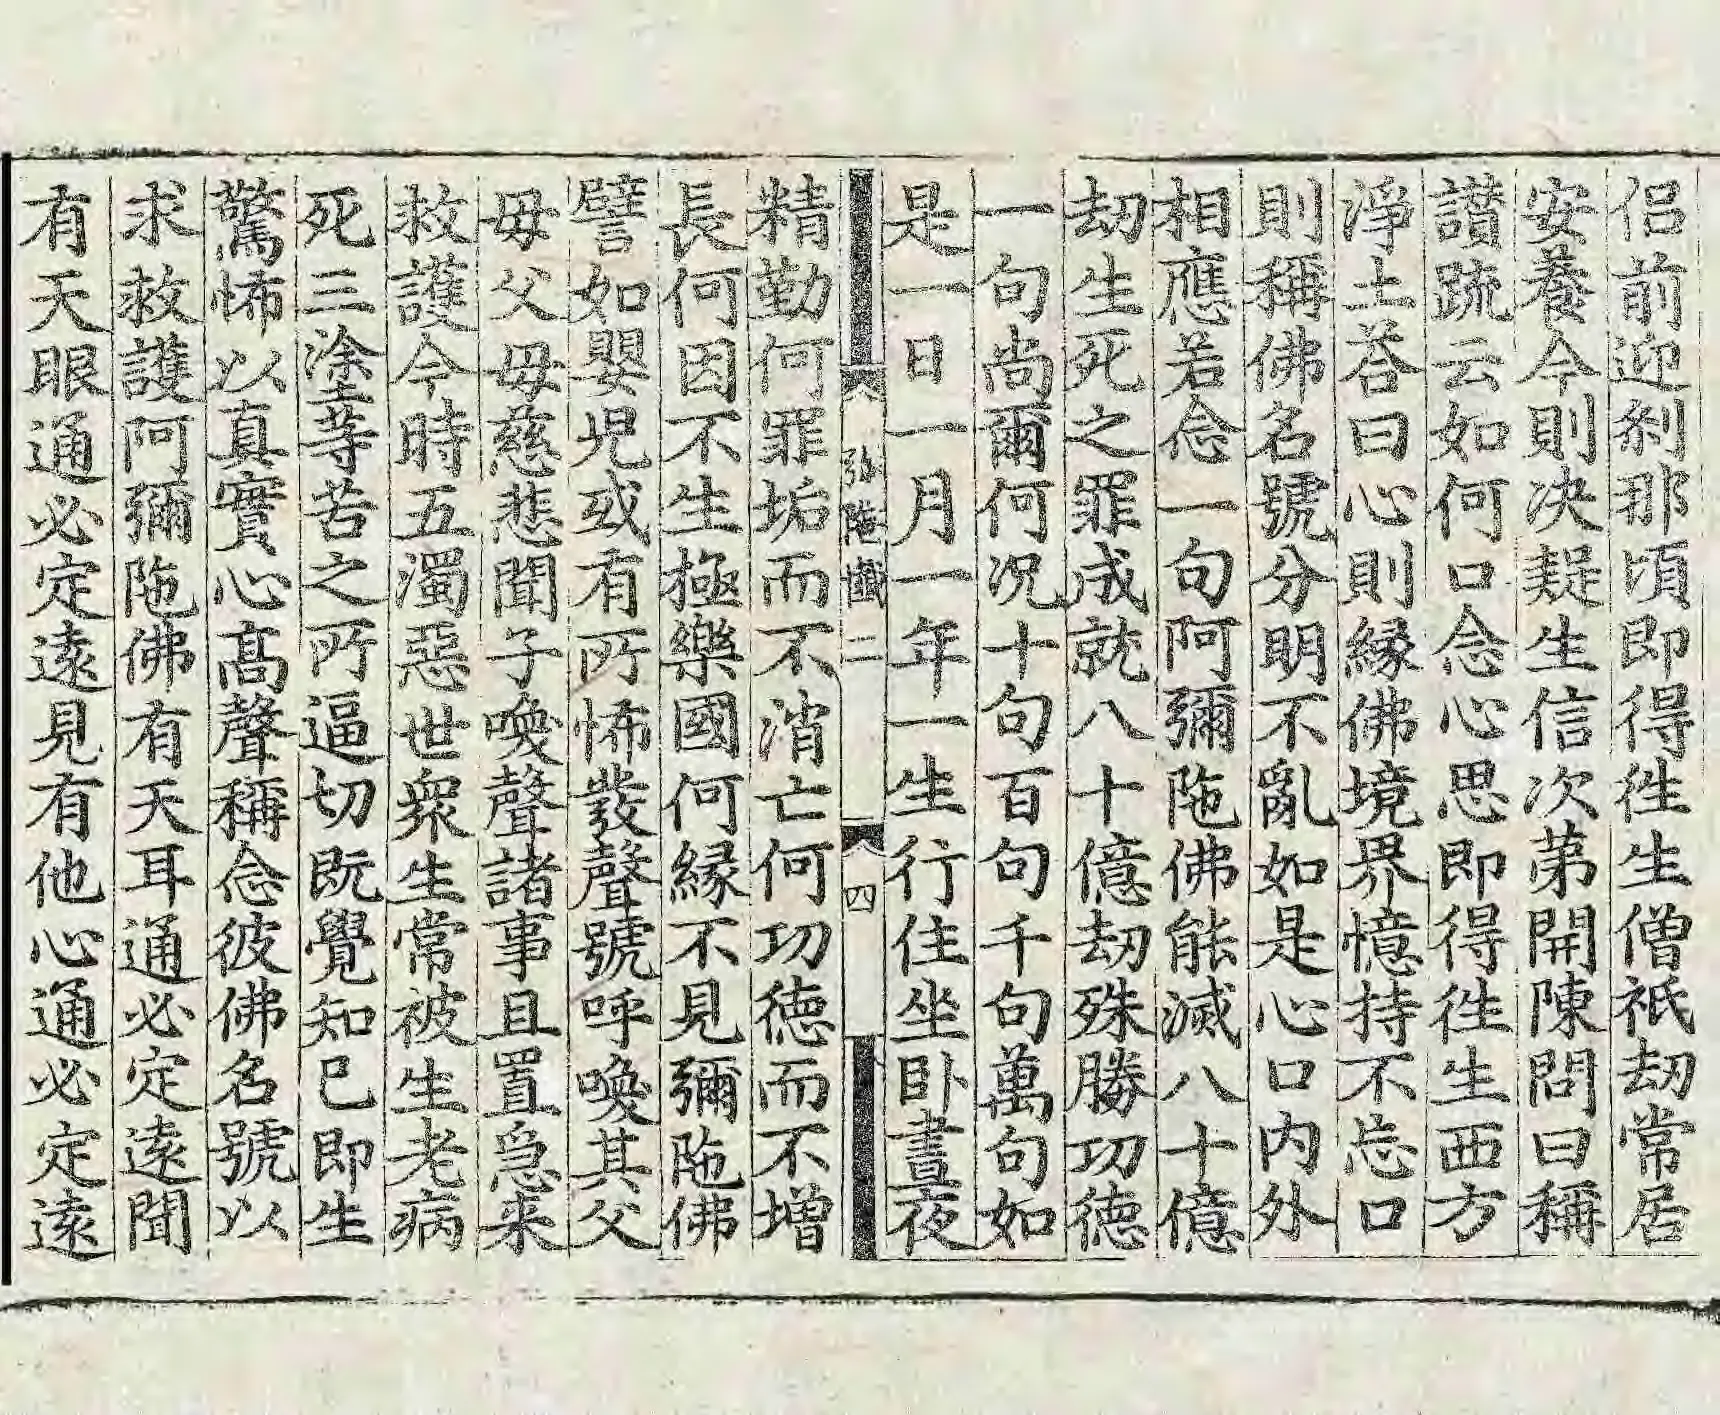 侶前迎刹那頃即得徃生僧祇劫常居
安養今則决疑生信次第開陳問曰稱
讃䟽云如何口念心思即得徃生西方
淨土荅曰心則縁佛境界憶持不忘口
則稱佛名號分明不亂如是心口内外
相應若念一句阿彌陁佛能滅八十億
劫生死之罪成就八十億劫殊勝功徳
一句尚爾何况十句百句千句萬句如
是一日一月一年一生行住坐卧晝夜
弘陁懺二
四
精勤何罪垢而不消亡何功徳而不增
長何因不生極樂國何縁不見彌陁佛
譬如嬰児或有所怖發聲號呼喚其父
母父母慈悲聞子喚聲諸事且置急来
救護今時五濁惡世衆生常被生老病
死三塗等苦之所逼切既覺知已即生
驚怖以真實心髙聲稱念彼佛名號以
求救護阿彌陁佛有天耳通必定遠聞
有天眼通必定遠見有他心通必定遠